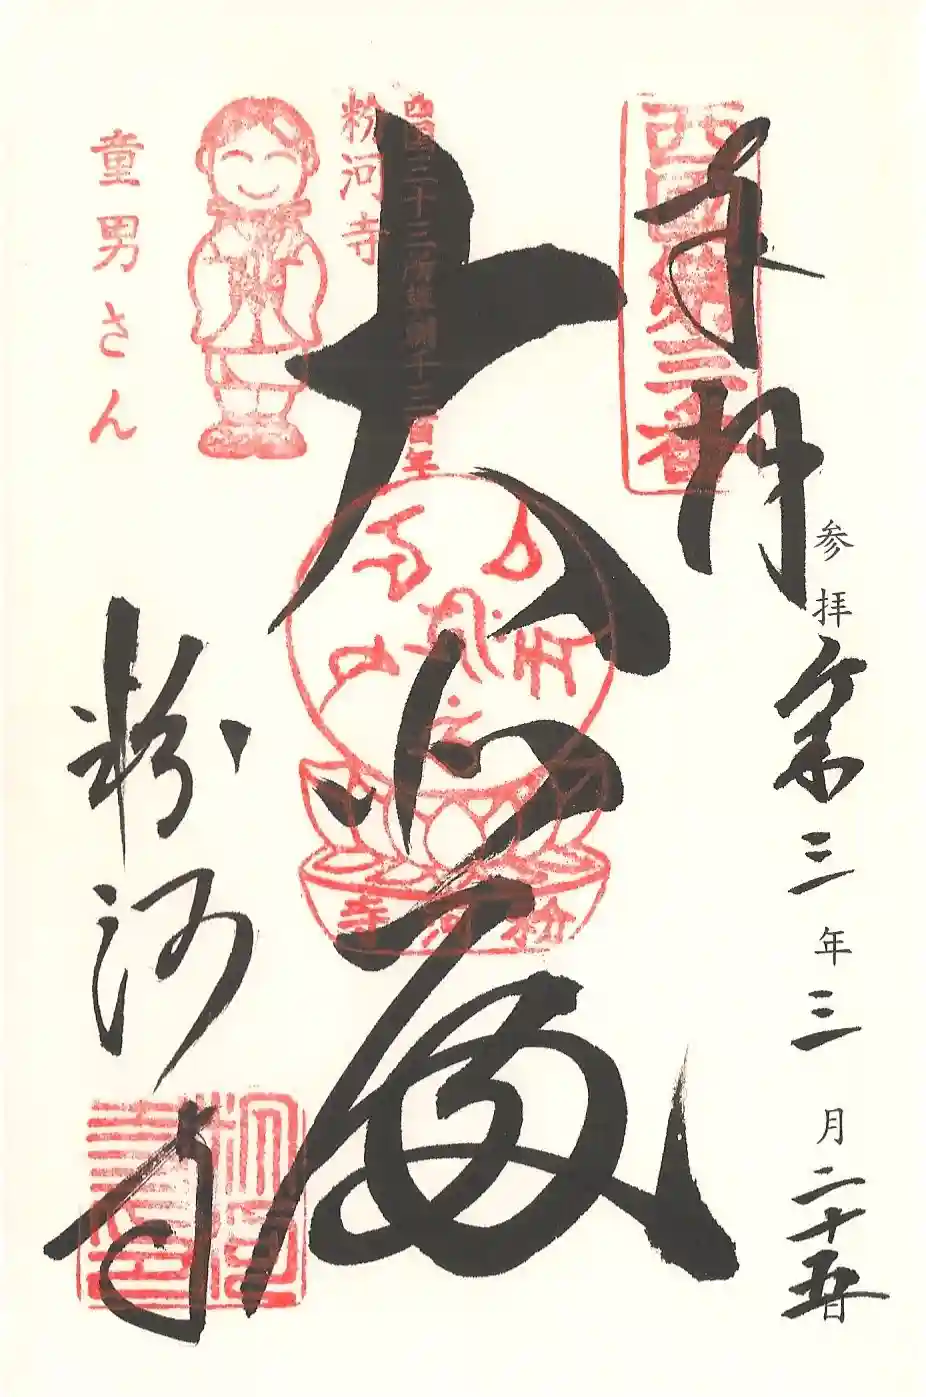 奉拝
西國第三番
参拝 令和三年三月二十五日
大悲殿
西国三十三所草創千三百年
粉河寺
童男さん
粉河寺
粉河寺
粉河寺印